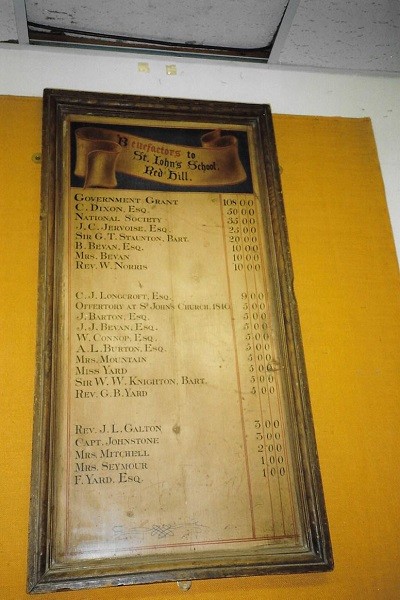 Benefactors to
St. John's School,
Red Hill.
Government Grant 108 0 0
C. Dixon, Esq. 50 0 0
National Society 35 0 0
J. C. Jervoise, Esq. 25 0 0
Sir G. T. Staunton, Bart. 20 0 0
B. Bevan, Esq. 10 0 0
Mrs. Bevan 10 0 0
Rev. W. Norris 10 0 0
C. J. Longcroft, Esq. 9 0 0
Offertory at St. John's Church, 1840 5 0 0
J. Barton, Esq. 5 0 0
J. J. Bevan, Esq. 5 0 0
W. Connop, Esq. 5 0 0
A. L. Burton, Esq. 5 0 0
Mrs. Mountain 5 0 0
Miss Yard 5 0 0
Sir W. W. Knighton, Bart. 5 0 0
Rev. G. B. Yard 5 0 0
Rev. J. L. Galton 3 0 0
Capt. Johnstone 3 0 0
Mrs. Mitchell 2 0 0
Mrs. Seymour 1 0 0
F. Yard, Esq. 1 0 0